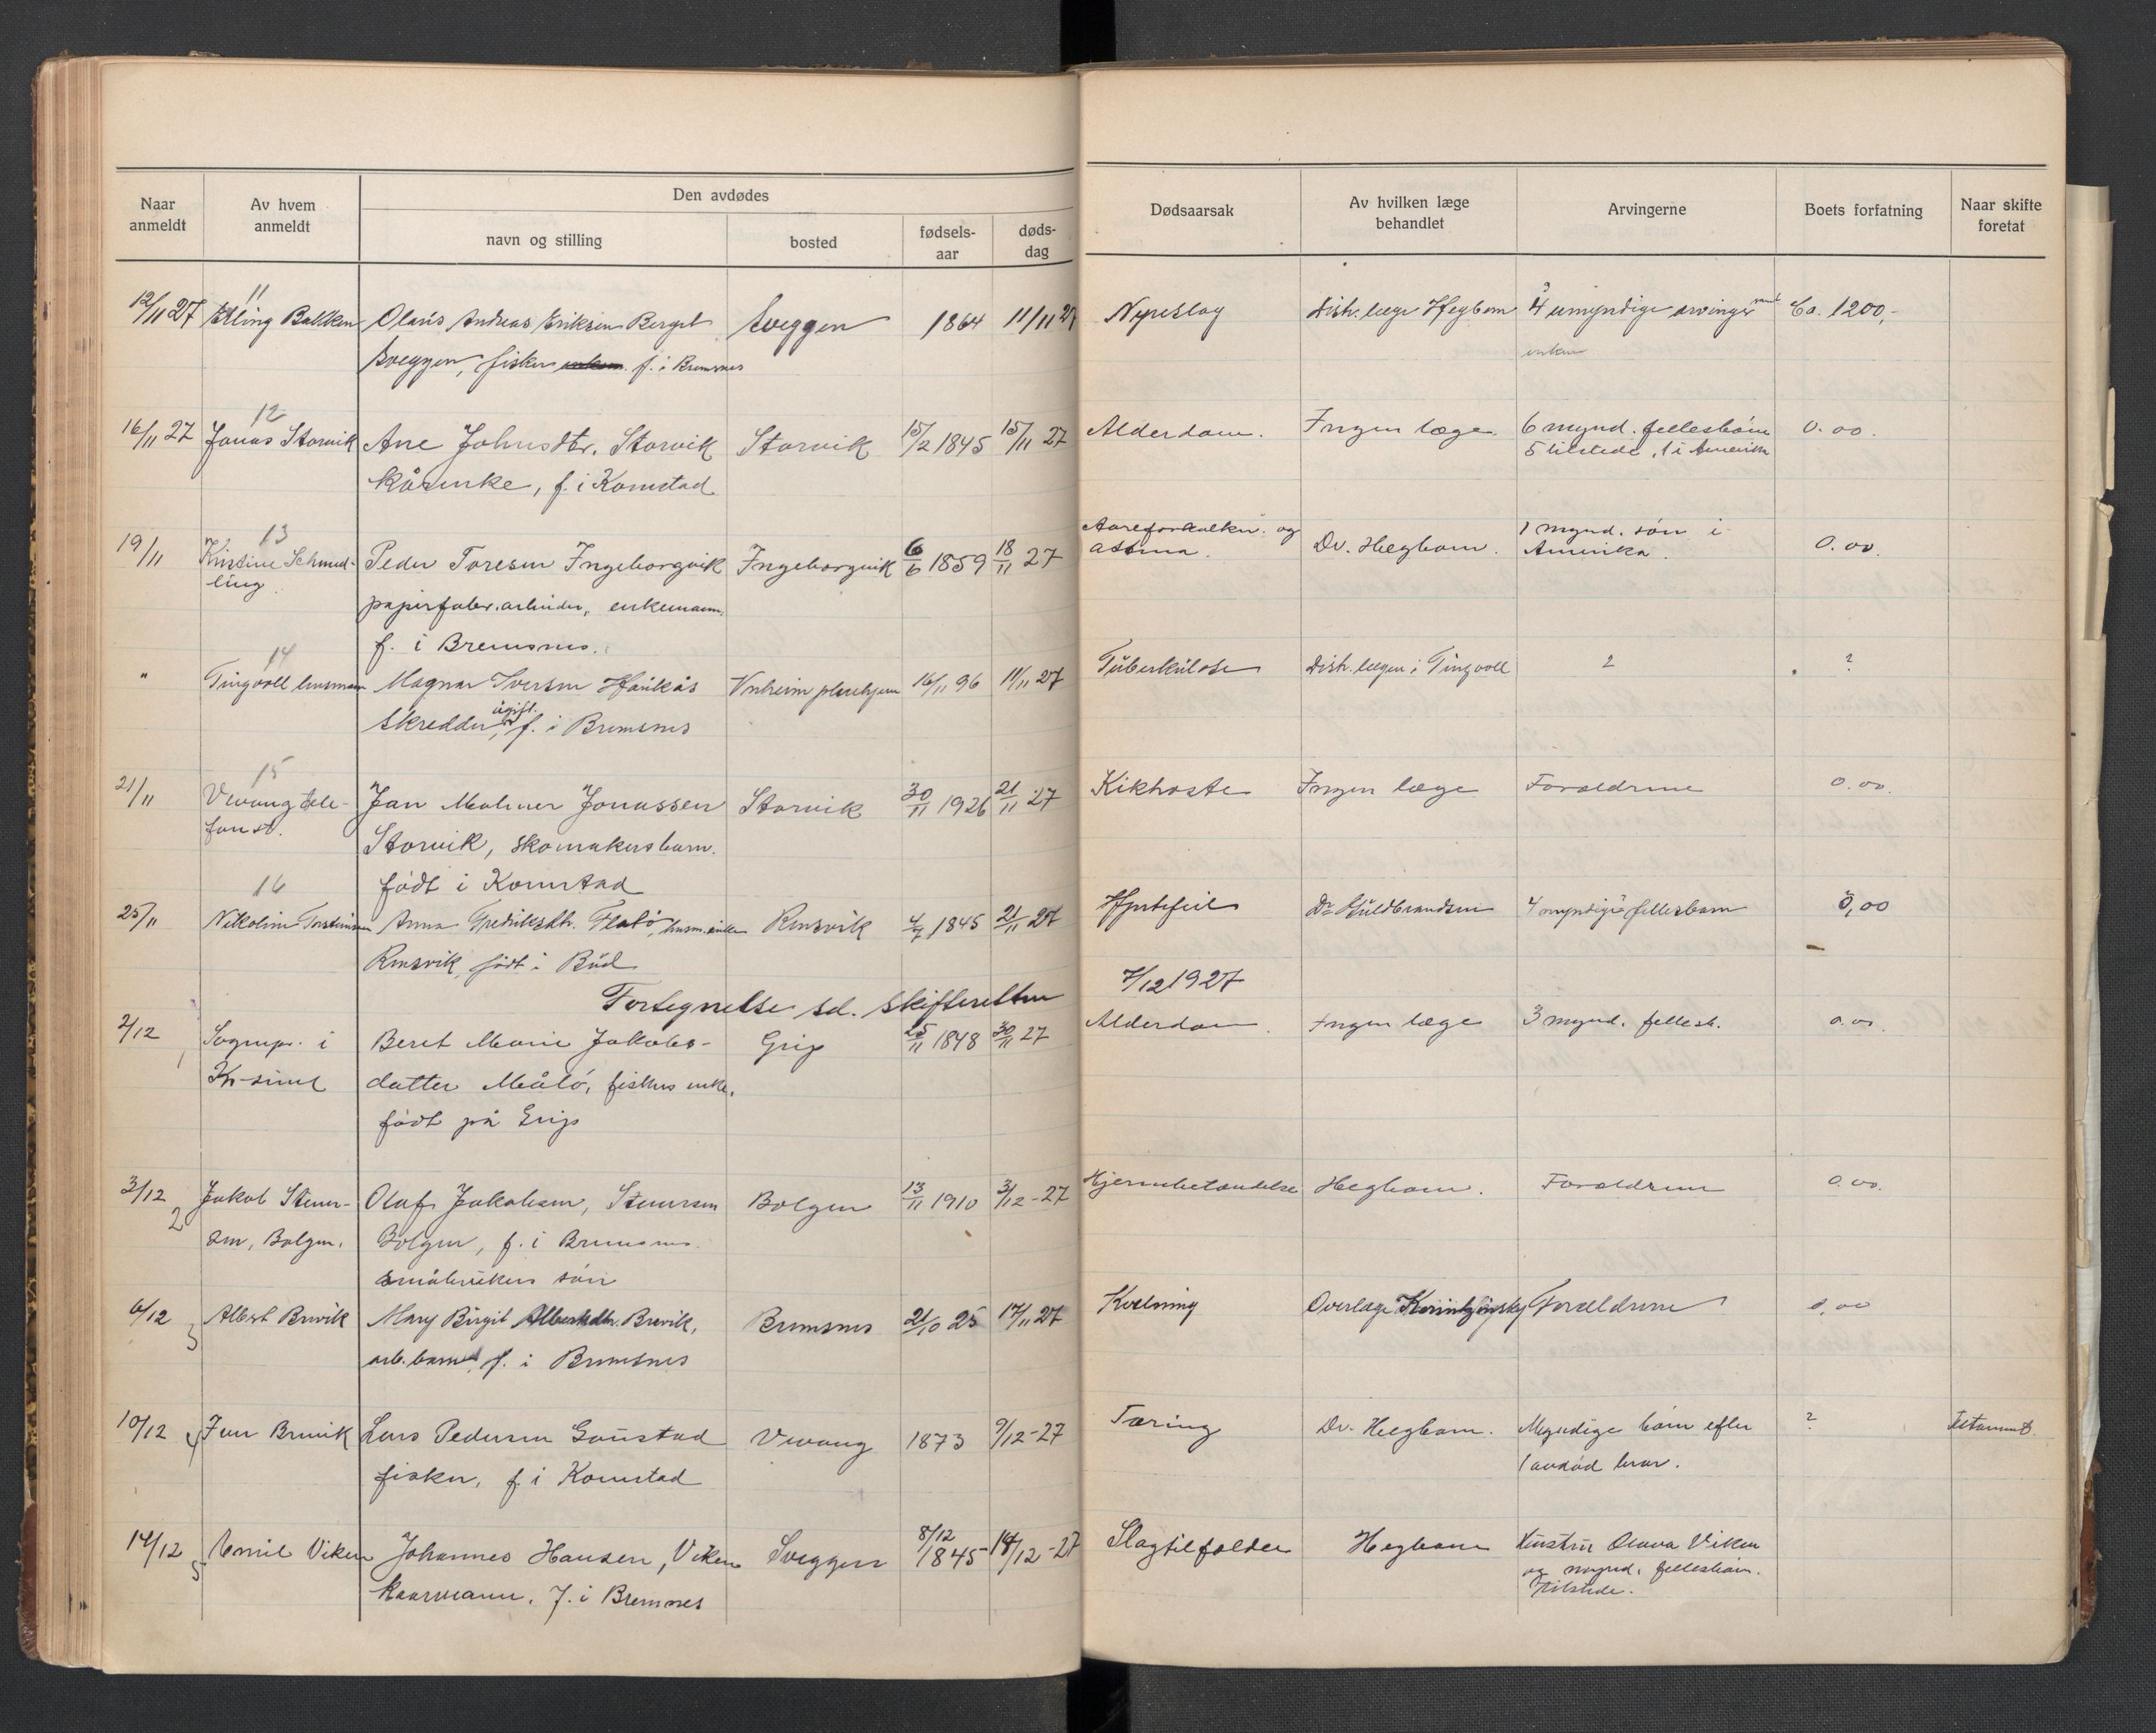 Naar anmeldt
Av hvem anmeldt
Den avdødes
navn og stilling
bosted
fødsels-aar
døds-dag
Dødsaarsak
Av hvilken læge behandlet
Arvingerne
Boets forfatning
Naar skifte foretat
11
12/11 27 Erling Bakken Olaus Andreas Eriksen Berget Sveggen 1864 11/11 27 Nyreslag Distr. læge Hegbom 4 umyndige arvinger samt Ca. 1200,-
Sveggen, fisker f. i Bremsnes enken
12
16/11 27 Jonas Storvik Ane Johnsdtr. Storvik Storvik 15/2 1845 15/11 27 Alderdom. Ingen læge 6 mynd. fellesbørn 0.00.
kårenke, f. i Kornstad 5 tilstede, 1 i Amerika
13
19/11 Kristine Schmed- Peder Toresen Ingeborgvik Ingeborgvik 6/6 1859 18/11 27 Aareforkalkn. og Dr. Hegbom. 1 mynd. søn i 0.00.
ling. papirfabr.arbeider, enkemann. astma. Amerika.
f. i Bremsnes.
14
" Tingvoll lensmann Magnar Iversen Haukås Vnheim pleiehjem 16/11 96 11/11 27 Tuberkulose Distr. lægen i Tingvoll ? ?
skredder, ugift. f. i Bremsnes
15
21/11 Vevang tele- Jan Malmer Jonassen Storvik 30/11 1926 21/11 27 Kikhoste Ingen læge Forældrene 0.00.
fonst. Storvik, skomakersbarn.
født i Kornstad
16
25/11 Nikoline Torsteinsen Anna Fredriksdtr. Flatø, husm.enke Rensvik 4/7 1845 21/11 27 Hjertefeil Dr Guldbrandsen 4 myndige fellesbarn 0,00
Rensvik, født i Bud
Fortegnelse sd. skifteretten 7/12 1927
2/12 1 Sognepr. i Beret Marie Jakobs- Grip 25/11 1848 30/11 27 Alderdom. Ingen læge 3 mynd. fellesb. 0.00.
Kr-sund datter Måløy, fiskers enke.
født på Grip
3/12 2 Jakob Stener- Olaf Jakobsen, Stenersen Bolgen 13/11 1910 3/12-27 Hjernebetændelse Hegbom. Forældrene 0.00.
sen, Bolgen. Bolgen, f. i Bremsnes.
småbrukers søn
6/12 3 Albert Brevik Mary Birgit Albertsdtr. Brevik, Bremsnes 21/10 25 17/11 27 Kvelning Overlæge Forældrene 0,00
arb. barn, f. i Bremsnes
10/12 4 Jon Brevik Lars Pedersen Gaustad Vevang 1873 9/12-27 Tæring Dr. Hegbom. Myndige børn efter ? Testament.
fisker, f. i Kornstad 1 avdød bror.
14/12 5 Emil Viken Johannes Hansen, Viken Sveggen 8/12 1845 14/12-27 Slagtilfelde Hegbom Hustru Olava Viken
kaarmann. f. i Bremsnes og mynd. fellesbørn.
tilstede.